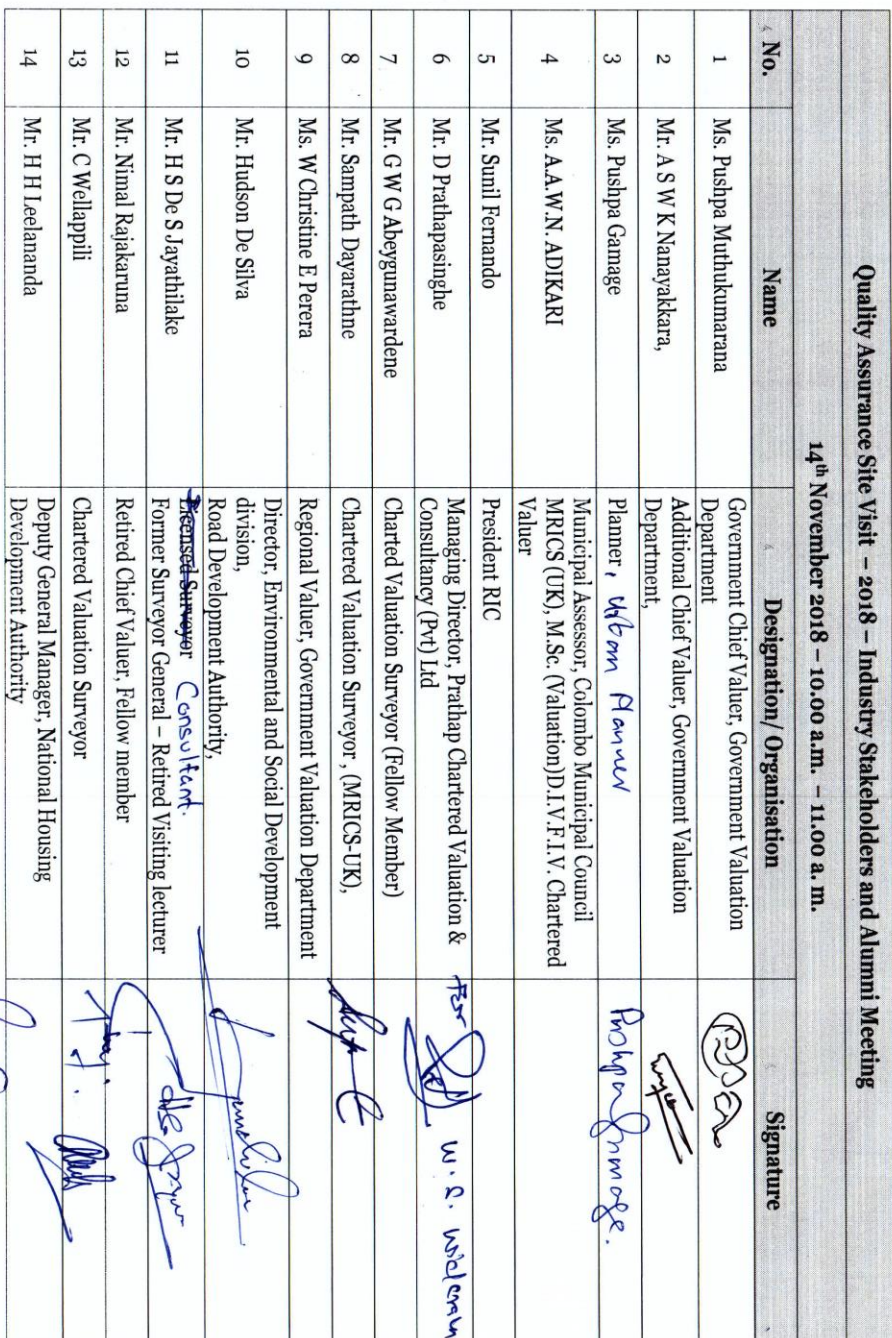 Quality Assurance Site Visit – 2018 – Industry Stakeholders and Alumni Meeting
14th November 2018 – 10.00 a.m. – 11.00 a. m.
No. Name Designation/ Organisation Signature
1 Ms. Pushpa Muthukumarana Government Chief Valuer, Government Valuation
Department
2 Mr. A S W K Nanayakkara, Additional Chief Valuer, Government Valuation
Department,
3 Ms. Pushpa Gamage Planner, Urban Planner Pushpa Gamage.
4 Ms. A.A.W.N. ADIKARI Municipal Assessor, Colombo Municipal Council
MRICS (UK), M.Sc. (Valuation)D.I.V.F.I.V. Chartered
Valuer
5 Mr. Sunil Fernando President RIC
6 Mr. D Prathapasinghe Managing Director, Prathap Chartered Valuation & For W. S.
Consultancy (Pvt) Ltd
7 Mr. G W G Abeygunawardene Charted Valuation Surveyor (Fellow Member)
8 Mr. Sampath Dayarathne Chartered Valuation Surveyor , (MRICS-UK),
9 Ms. W Christine E Perera Regional Valuer, Government Valuation Department
10 Mr. Hudson De Silva Director, Environmental and Social Development
division,
Road Development Authority,
11 Mr. H S De S Jayathilake Licensed Surveyor Consultant.
Former Surveyor General – Retired Visiting lecturer
12 Mr. Nimal Rajakaruna Retired Chief Valuer, Fellow member
13 Mr. C Wellappili Chartered Valuation Surveyor
14 Mr. H H Leelananda Deputy General Manager, National Housing
Development Authority